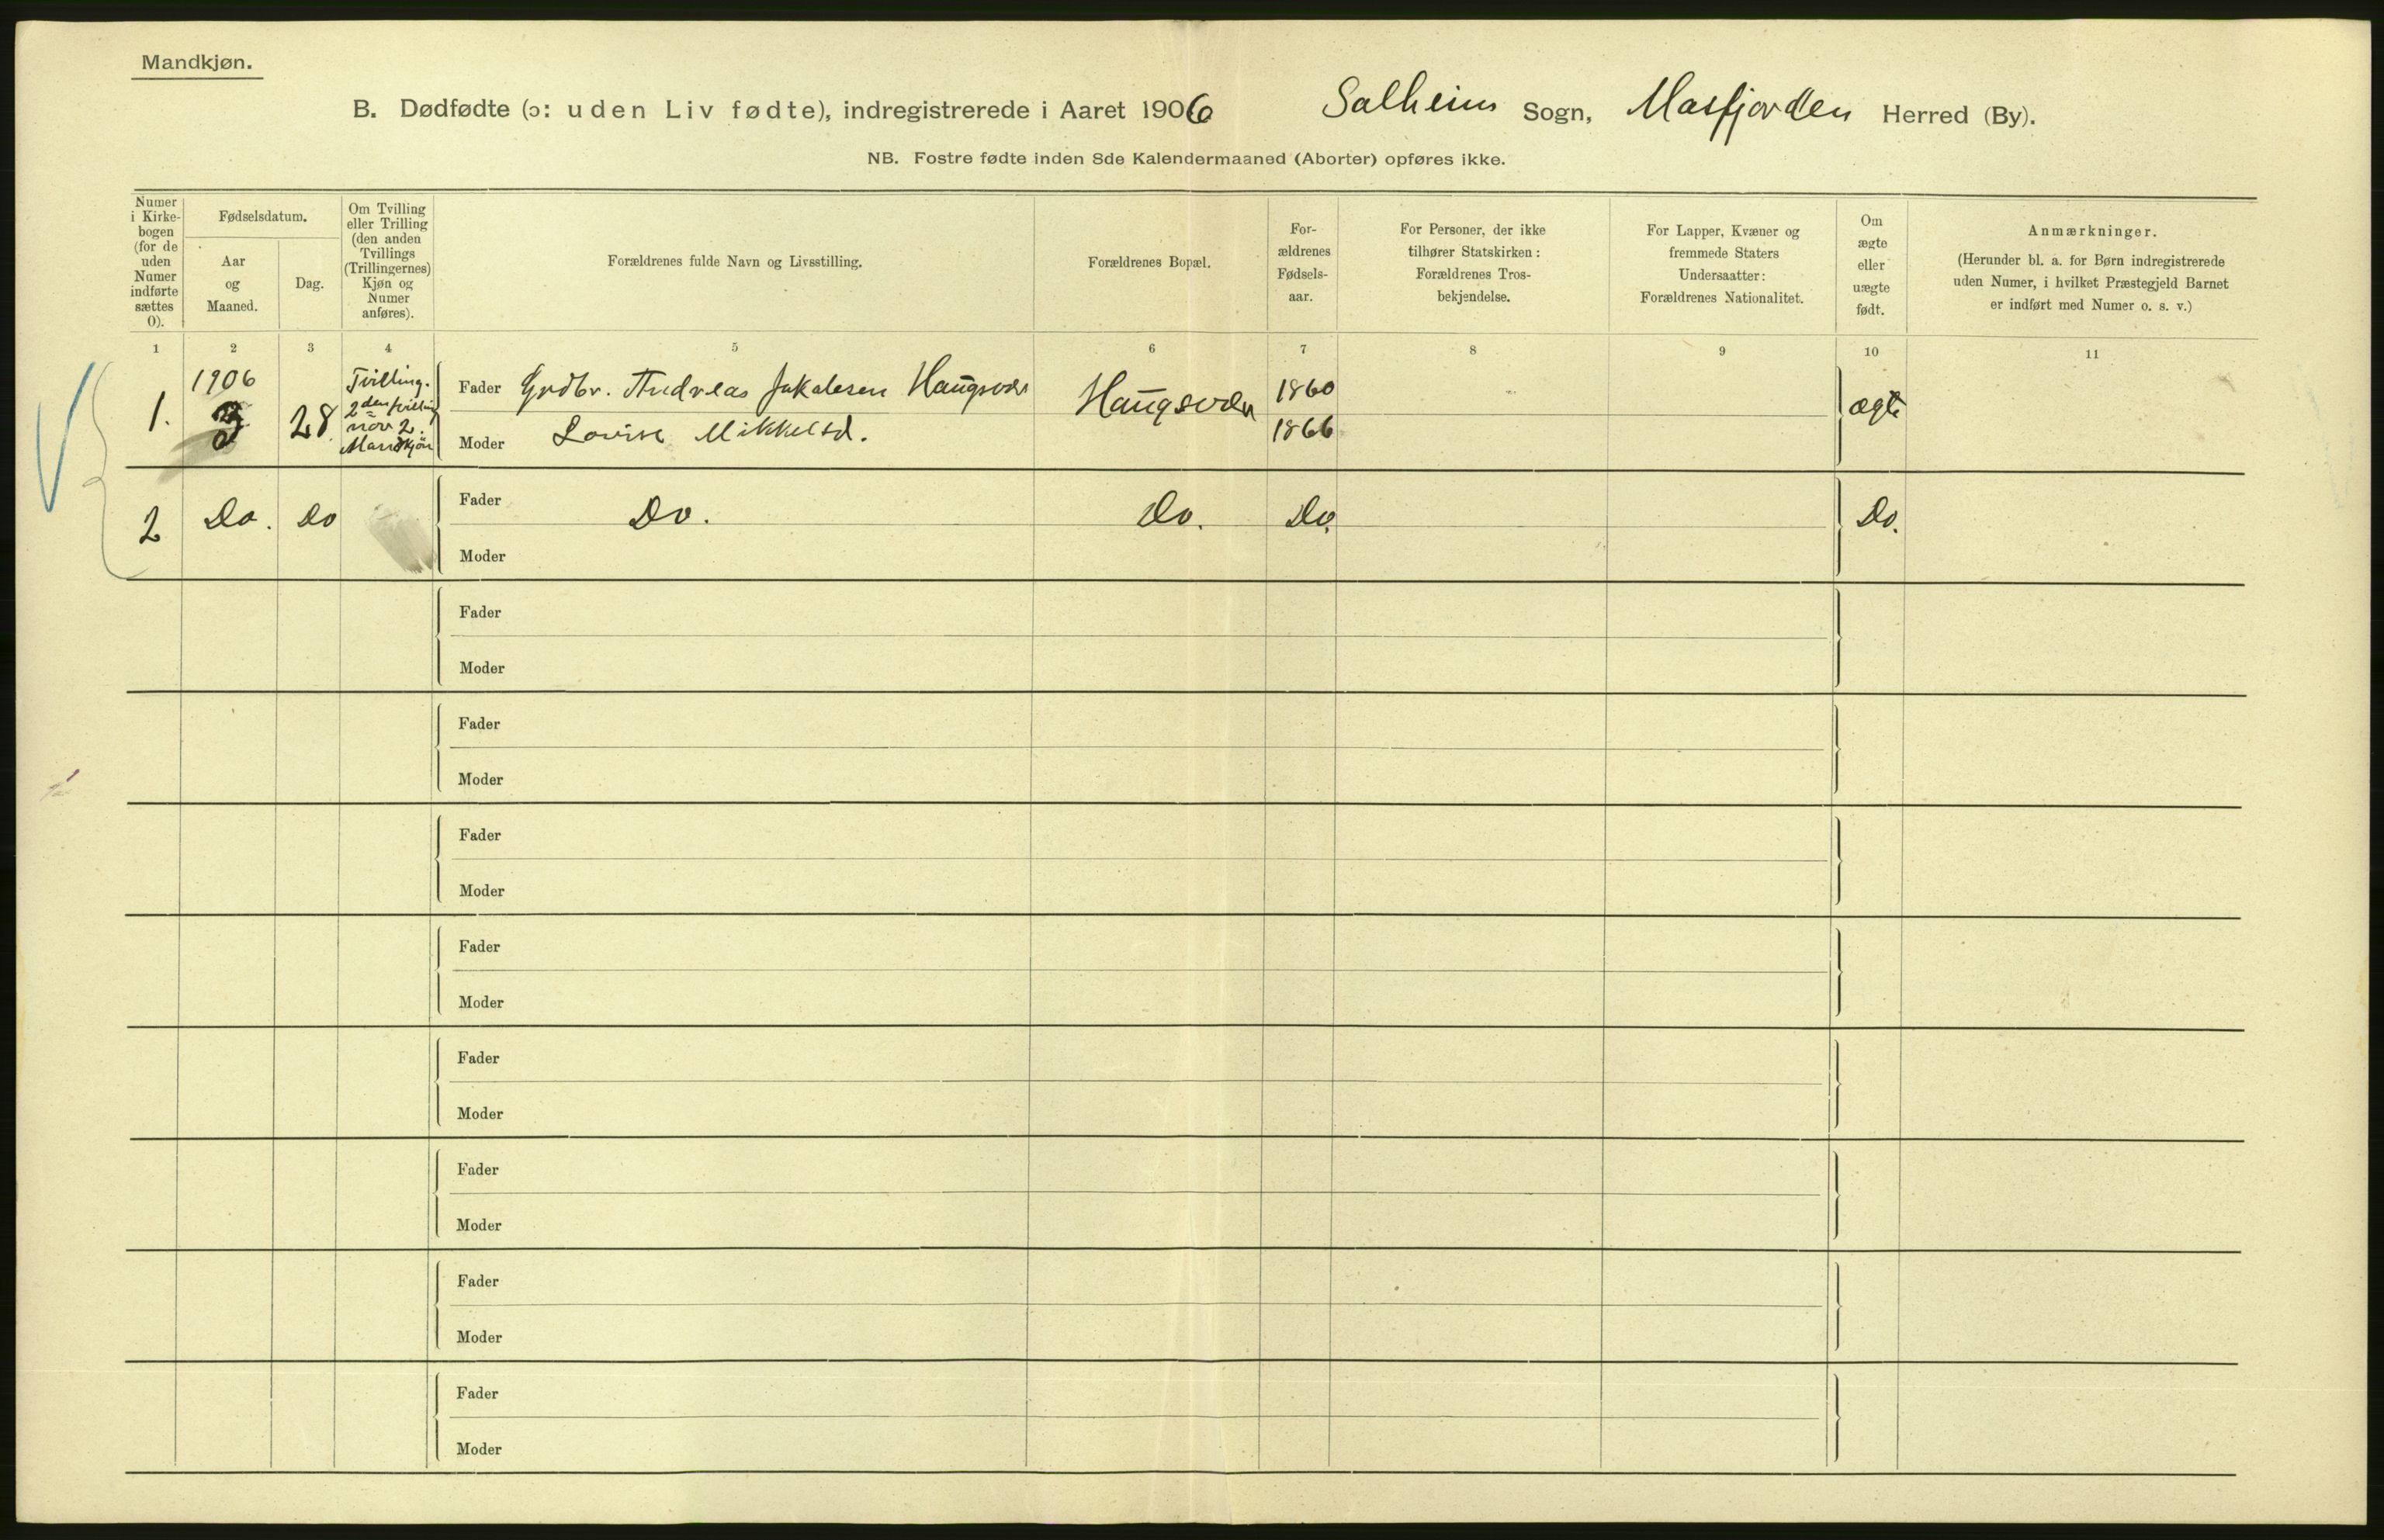 Mandkjøn.
B. Dødfødte (ɔ: uden Liv fødte), indregistrerede i Aaret 1906 Solheim Sogn, Masfjorden Herred (By).
NB. Fostre fødte inden 8de Kalendermaaned (Aborter) opføres ikke.
Numer
i Kirke-
bogen
(for de
uden
Numer
indførte
sættes
0).
Fødselsdatum.
Aar
og
Maaned.
Dag.
Om Tvilling
eller Trilling
(den anden
Tvillings
(Trillingernes)
Kjøn og
Numer
anføres).
Forældrenes fulde Navn og Livsstilling.
Forældrenes Bopæl.
For-
ældrenes
Fødsels-
aar.
For Personer, der ikke
tilhører Statskirken:
Forældrenes Tros-
bekjendelse.
For Lapper, Kvæner og
fremmede Staters
Undersaatter:
Forældrenes Nationalitet.
Om
ægte
eller
uægte
født.
Anmærkninger.
(Herunder bl. a. for Børn indregistrerede
uden Numer, i hvilket Præstegjeld Barnet
er indført med Numer o. s. v.)
1 2 3 4 5 6 7 8 9 10 11
1. 1906 28
Tvilling.
2den tvilling
nov 2.
Mandkjøn
Fader Grdbr. Andreas Jakobsen 1860
Moder Lovise Mikkelsd. 1866
ægte
2 Do. Do
Fader Do. Do. Do. Do.
Moder
Fader
Moder
Fader
Moder
Fader
Moder
Fader
Moder
Fader
Moder
Fader
Moder
Fader
Moder
Fader
Moder